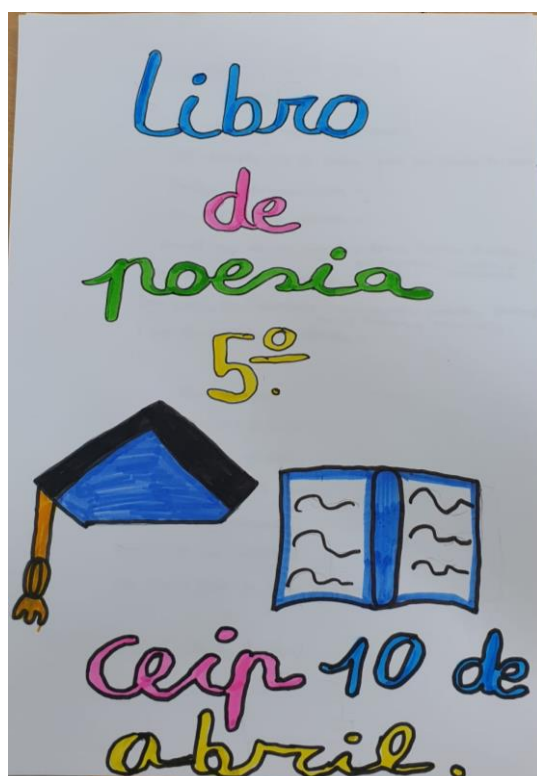 Libro
de
poesia
5º.
Ceip 10 de
abril.